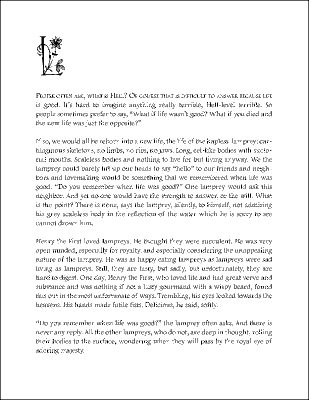 PEOPLE OFTEN ASK, WHAT IS HELL? OF COURSE THAT IS DIFFICULT TO ANSWER BECAUSE LIFE
is good. It's hard to imagine anything really terrible, Hell-level terrible. So
people sometimes prefer to say, "What if life wasn't good? What if you died and
the new life was just the opposite?"
If so, we would all be reborn into a new life, the life of the hapless lamprey: car-
tilaginous skeletons, no limbs, no ribs, no jaws. Long, eel-like bodies with suctio-
nal mouths. Scaleless bodies and nothing to live for but living anyway. We the
lampreys could barely lift up our heads to say "hello" to our friends and neigh-
bors and lovemaking would be something that we remembered when life was
good. "Do you remember when life was good?" One lamprey would ask this
neighbor. And yet no one would have the strength to answer, or the will. What
is the point? There is none, says the lamprey, silently, to himself, not admiring
his grey scaleless body in the reflection of the water which he is sorry to see
cannot drown him.
Henry the First loved lampreys. He thought they were succulent. He was very
open minded, especially for royalty, and especially considering the unappealing
nature of the lamprey. He was as happy eating lampreys as lampreys were sad
living as lampreys. Still, they are tasty, but sadly, but unfortunately, they are
hard to digest. One day, Henry the First, who loved life and had great verve and
substance and was nothing if not a lusty gourmand with a wispy beard, found
this out in the most unfortunate of ways. Trembling, his eyes looked towards the
heavens. His hands made futile fists. Delicious, he said, softly.
"Do you remember when life was good?" the lamprey often asks. And there is
never any reply. All the other lampreys, who do not, are deep in thought, rolling
their bodies to the surface, wondering when they will pass by the royal eye of
adoring majesty.